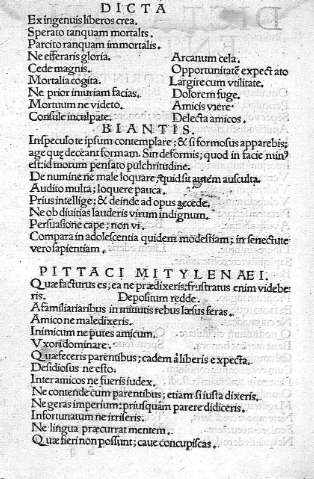 DICTA
Ex ingenuis liberos crea.
Sperato tanquam mortalis.
Parcito tanquam immortalis.
Ne efferaris gloria. Arcanum cela.
Cede magnis. Opportunitatē expectato
Mortalia cogita. Largire cum vtilitate.
Ne prior iniuriam facias. Dolorem fuge.
Mortuum ne rideto. Amicis vtere
Consule inculpate. Delecta amicos.
BIANTIS.
In speculo te ipsum contemplare; & si formosus apparebis;
age quę deceant formam. Sin deformis; quod in facie minus
est; id morum pensato pulchritudine.
De numine ne male loquare; quid sit autem ausculta.
Audito multa; loquere pauca.
Prius intellige; & deinde ad opus accede.
Ne ob diuitias lauderis virum indignum.
Persuasione cape; non vi.
Compara in adolescentia quidem modestiam; in senectute
vero sapientiam.
PITTACI MITYLENAEI.
Quæ facturus es; ea ne prædixeris; frustratus enim videbe
ris. Depositum redde.
A familiaribus in minutis rebus læsus feras.
Amico ne maledixeris.
Inimicum ne putes amicum.
Vxori dominare.
Quæ feceris parentibus; eadem à liberis expecta.
Desidiosus ne esto.
Inter amicos ne fueris iudex.
Ne contende cum parentibus; etiam si iusta dixeris.
Ne geras imperium; priusquàm parere didiceris.
Infortunatum ne irriseris.
Ne lingua præcurrat mentem.
Quæ fieri non possunt; caue concupiscas.